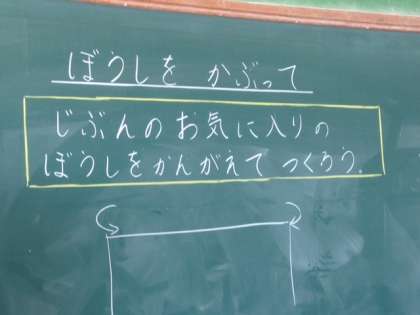 ぼうしを かぶって
じぶんのお気に入りの
ぼうしをかんがえて つくろう。